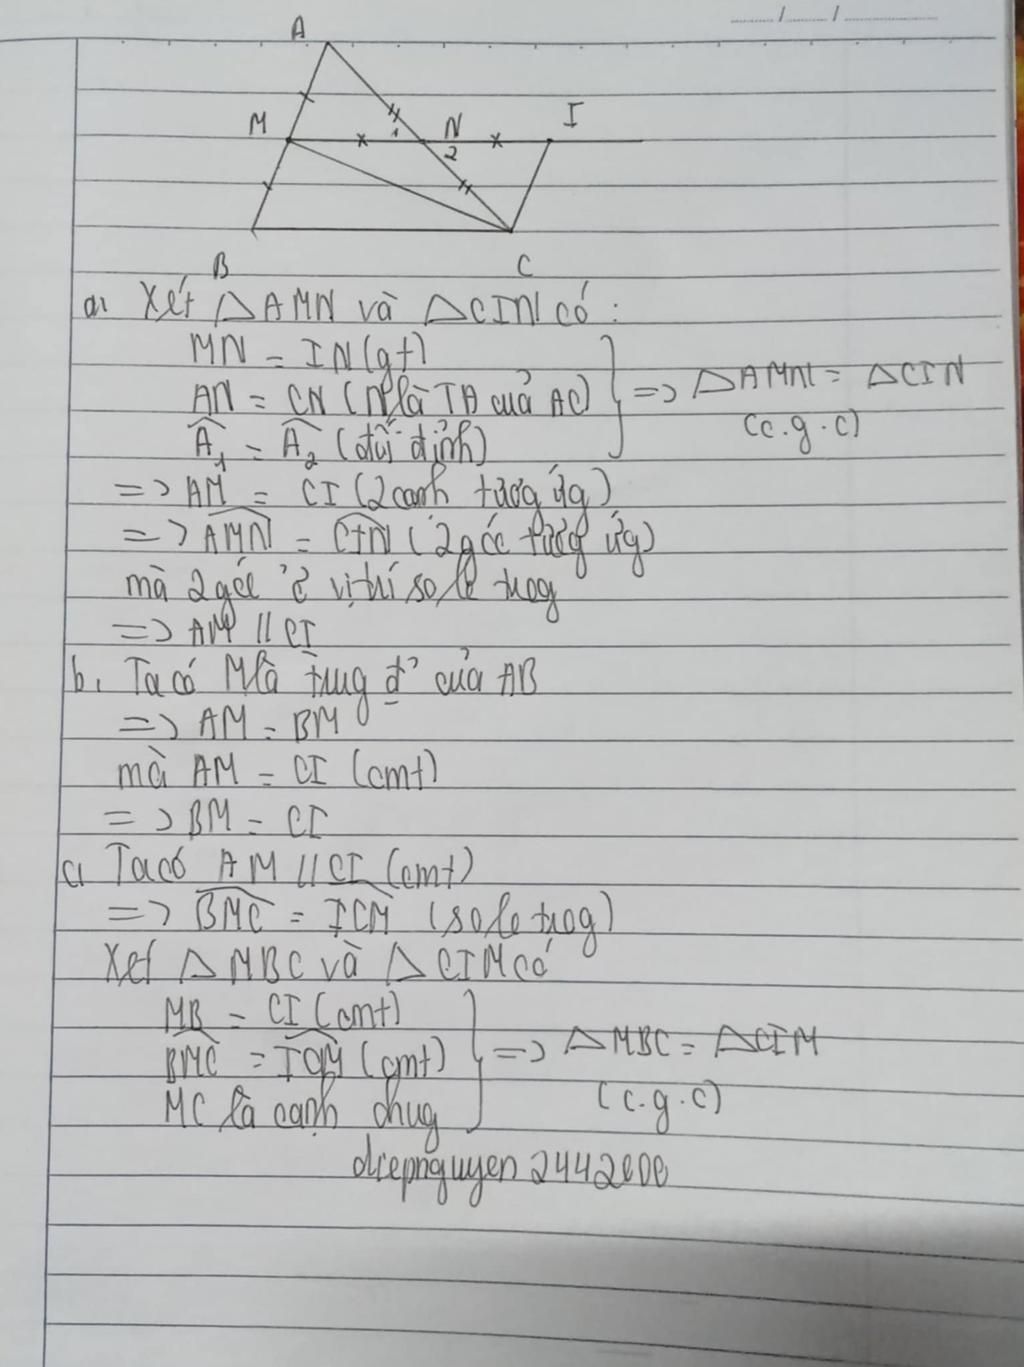 A
M N I
1
2
B C
a, Xét △AMN và △CIN có:
MN = IN (gt)
AN = CN (N là TĐ của AC)
A₁ = A₂ (đối đỉnh)
=> △AMN = △CIN
(c.g.c)
=> AM = CI (2 cạnh tương ứg)
=> AMN = CIN (2 góc tương ứg)
mà 2 góc ở vị trí so le trog
=> AM // CI
b, Ta có M là trug đ' của AB
=> AM = BM
mà AM = CI (cmt)
=> BM = CI
c, Ta có AM // CI (cmt)
=> BMC = ICM (so le trog)
Xét △MBC và △CIM có
MB = CI (cmt)
BMC = ICM (cmt)
MC là cạnh chug
=> △MBC = △CIM
(c.g.c)
diepnguyen2442000